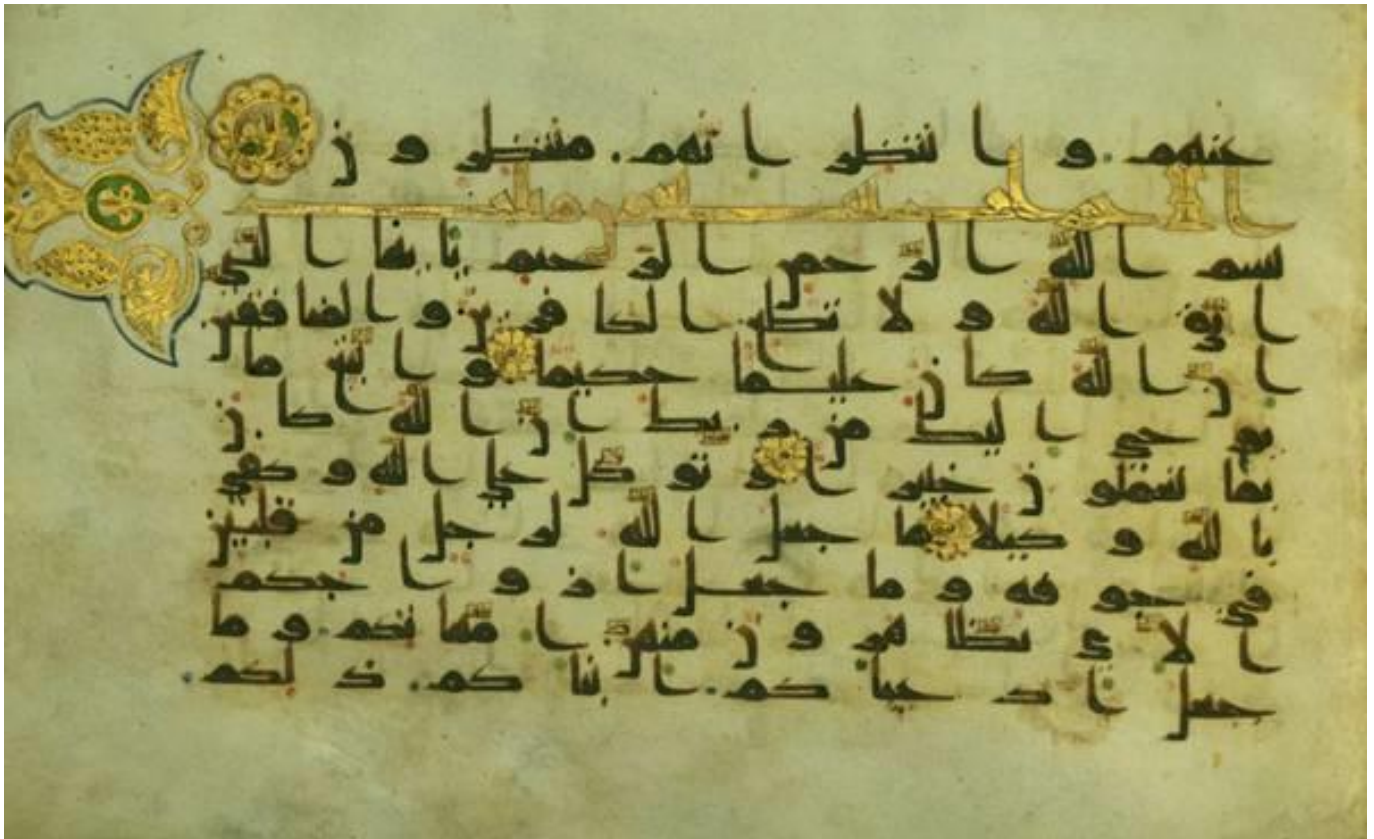 عنهم وانتظر انهم منتظرون
بسم الله الرحمن الرحيم يايها النبي
اتق الله ولا تطع الكافرين والمنافقين
ان الله كان عليما حكيما واتبع ما
يوحي اليك من ربك ان الله كان
بما تعملون خبيرا وتوكل علي الله وكفي
بالله وكيلا ما جعل الله لرجل من قلبين
في جوفه وما جعل ازواجكم
الاي تظاهرون منهن امهاتكم وما
جعل ادعياكم ابناكم ذلكم